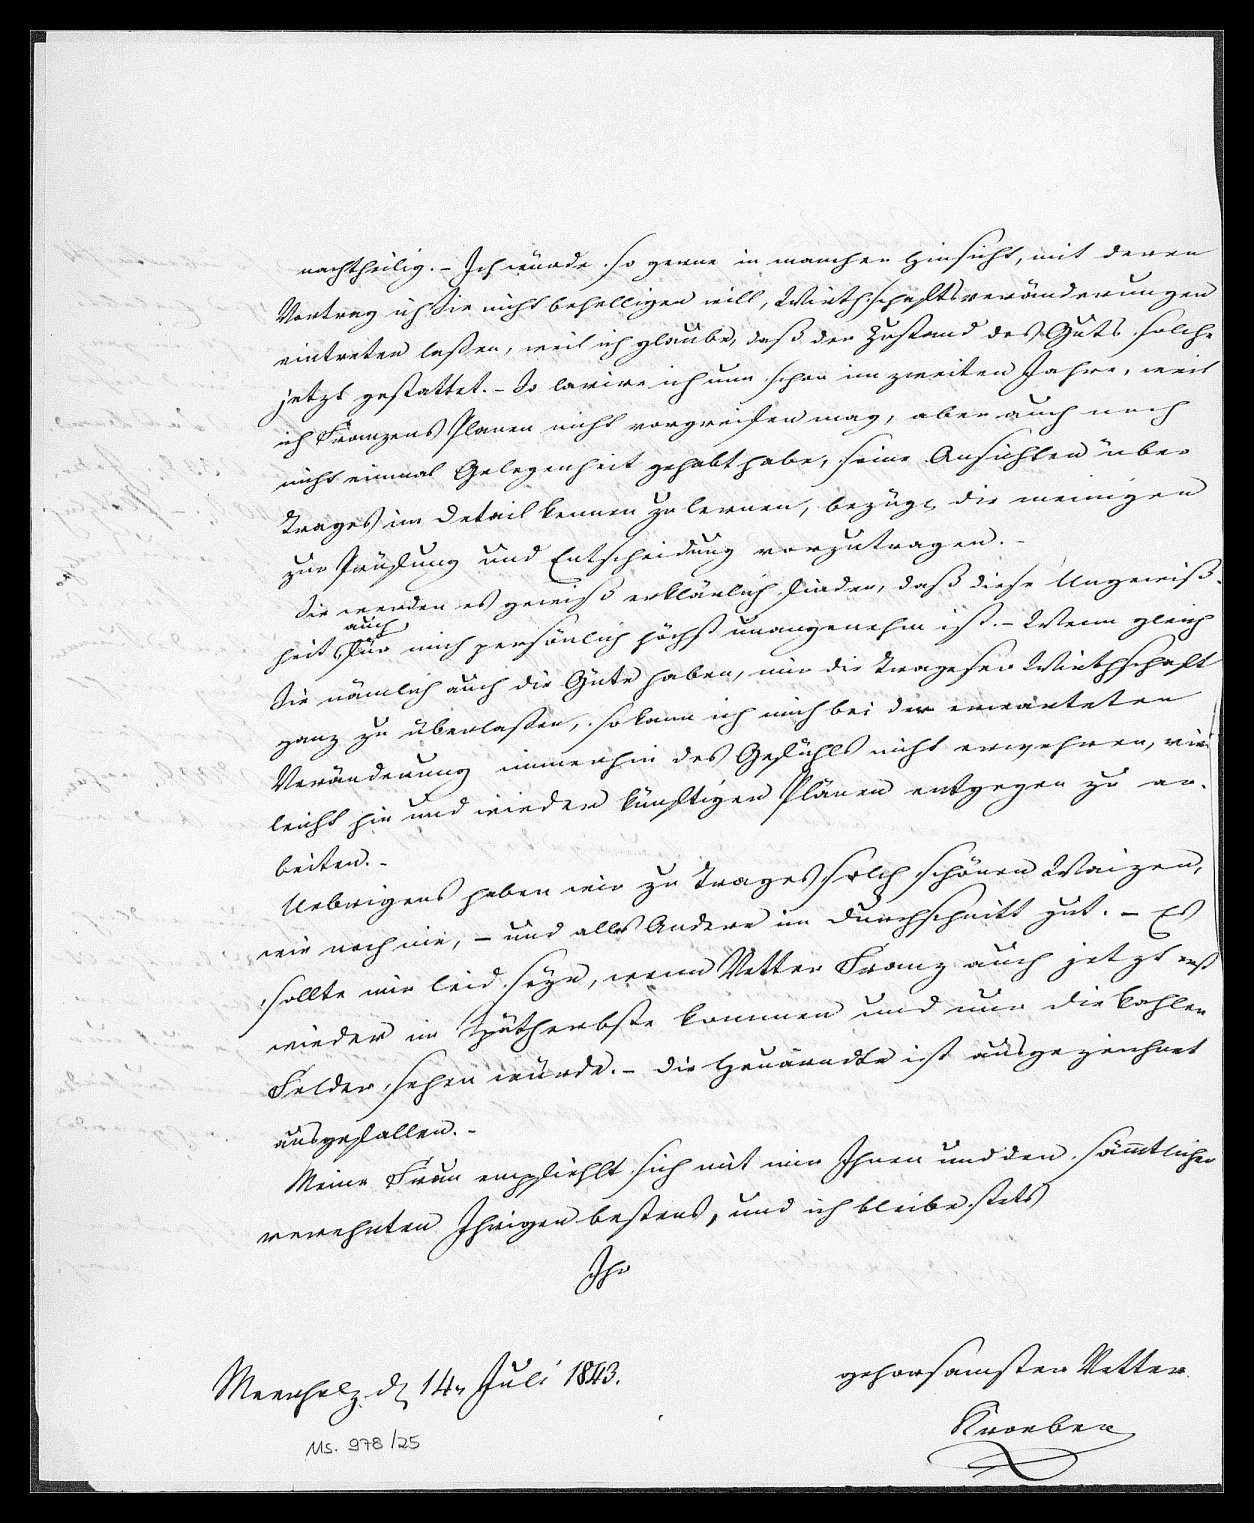 nachtheilig. – Ich würde so gerne in mancher Hinsicht, mit deren
Vortrag ich Sie nicht behelligen will, Wirthschaftsveränderungen
eintreten laßen, weil ich glaube, daß der Zustand des Guts solche
jetzt gestattet. – So lavire ich nun schon im zweiten Jahre, weil
ich Franzens Planen nicht vorgreifen mag, aber auch noch
nicht einmal Gelegenheit gehabt habe, seine Ansichten über
Trages im Detail kennen zu lernen, bezügl. die meinigen
zur Prüfung und Entscheidung vorzutragen. –
Sie werden es gewiß erklärlich finden, daß diese Ungewiß-
heit auch für mich persönlich höchst unangenehm ist. – Wenn gleich
Sie nämlich auch die Güte haben, mir die Trageser Wirthschaft
ganz zu überlaßen, so kann ich mich bei der erwarteten
Veränderung immerhin des Gefühls nicht erwehren, viel
leicht hin und wieder künftigen Plänen entgegen zu ar-
beiten. –
Uebrigens haben wir zu Trages solch schönen Waizen,
wie noch nie, – und alles Andere im Durchschnitt gut. – Es
sollte mir leid seyn, wenn Vetter Franz auch jetzt erst
wieder im Spätherbste kommen und nur die kahlen
Felder sehen würde. – Die Heuärndte ist ausgezeichnet
ausgefallen. –
Meine Frau empfiehlt sich mit mir Ihnen und den sämtlichen
verehrten Ihrigen bestens, und ich bleibe stets
Ihr
gehorsamster Vetter
Meerholz d. 14n Juli 1843.
Kroeber
Ms. 978/25